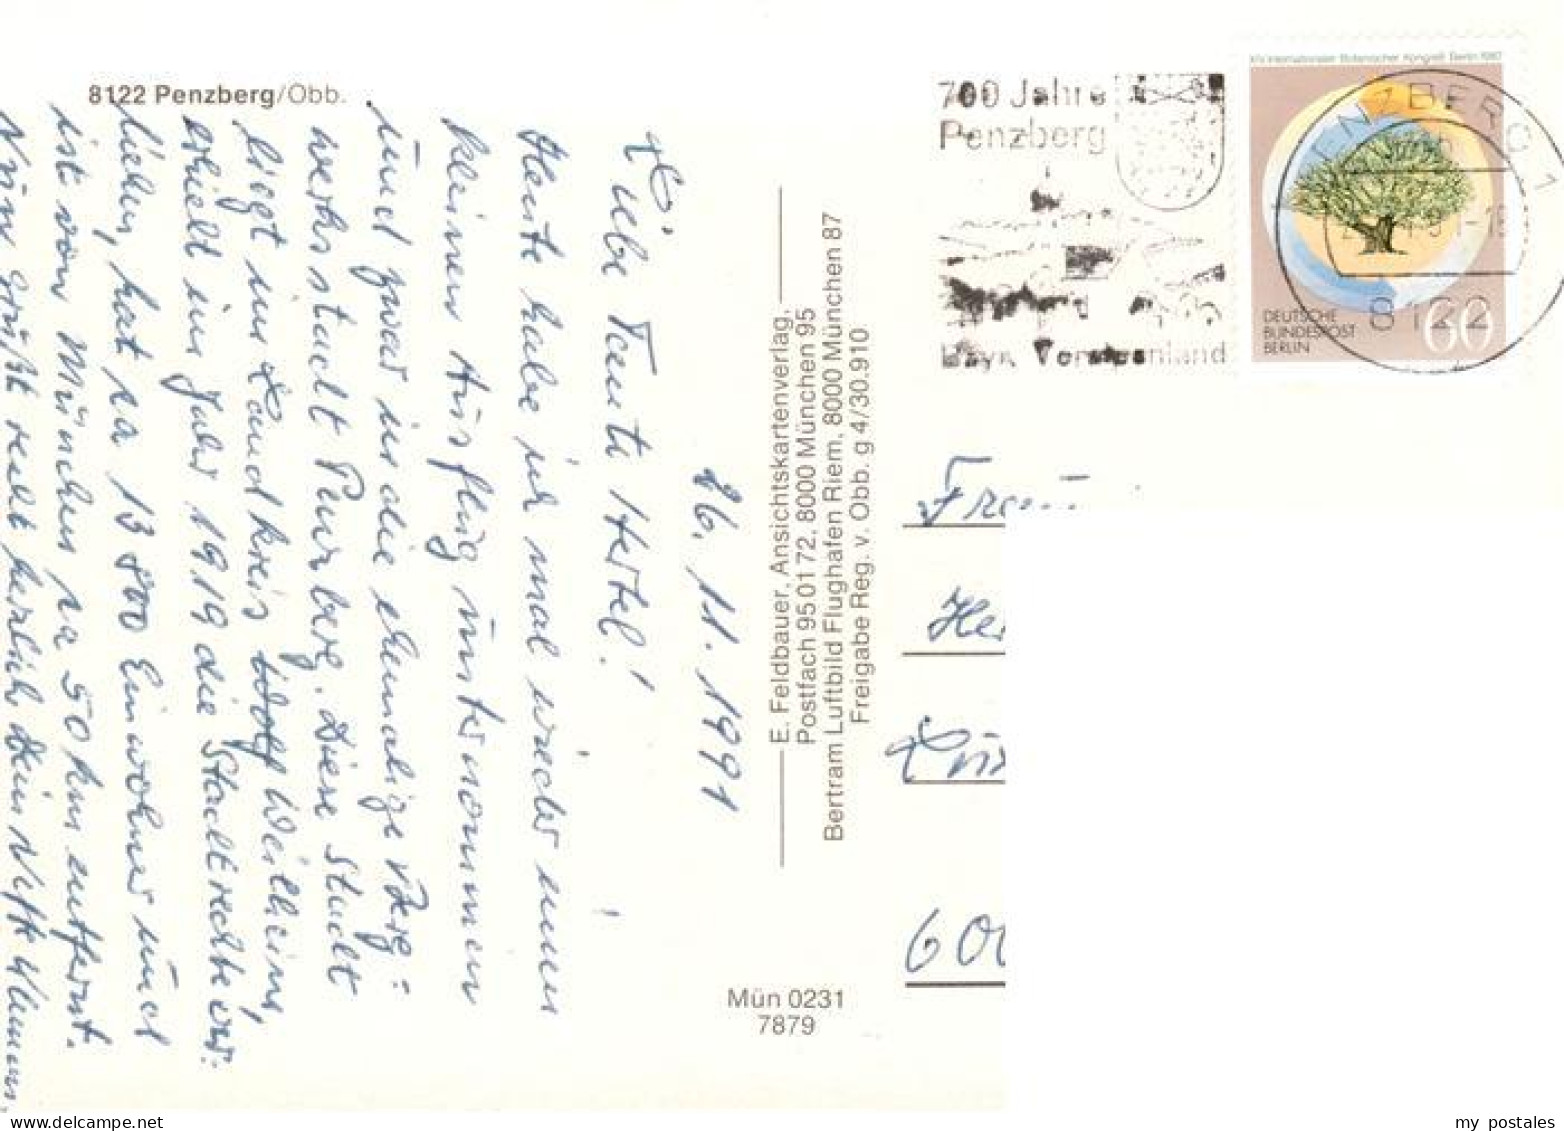 8122 Penzberg/Obb.
26. 11. 1991
Liebe Tante Hertel!
Heute habe ich mal wieder einen
kleinen Ausflug unternommen
und zwar in die ehemalige Berg-
werksstadt Penzberg. Diese Stadt
liegt im Landkreis Wolf Weilheim,
erhielt im Jahr 1919 die Stadtrechte ver-
liehen, hat ca 13 800 Einwohner und
ist von München ca 50 km entfernt.
Nun grüßt recht herzlich Dein Neffe
E. Feldbauer, Ansichtskartenverlag,
Postfach 95 01 72, 8000 München 95
Bertram Luftbild Flughafen Riem, 8000 München 87
Freigabe Reg. v. Obb. g 4/30.910
Mün 0231
7879
700 Jahre
Penzberg
XIV. Internationaler Botanischer Kongreß Berlin 1987
DEUTSCHE
BUNDESPOST
BERLIN
60
PENZBERG 1
8122
Frau
my postales